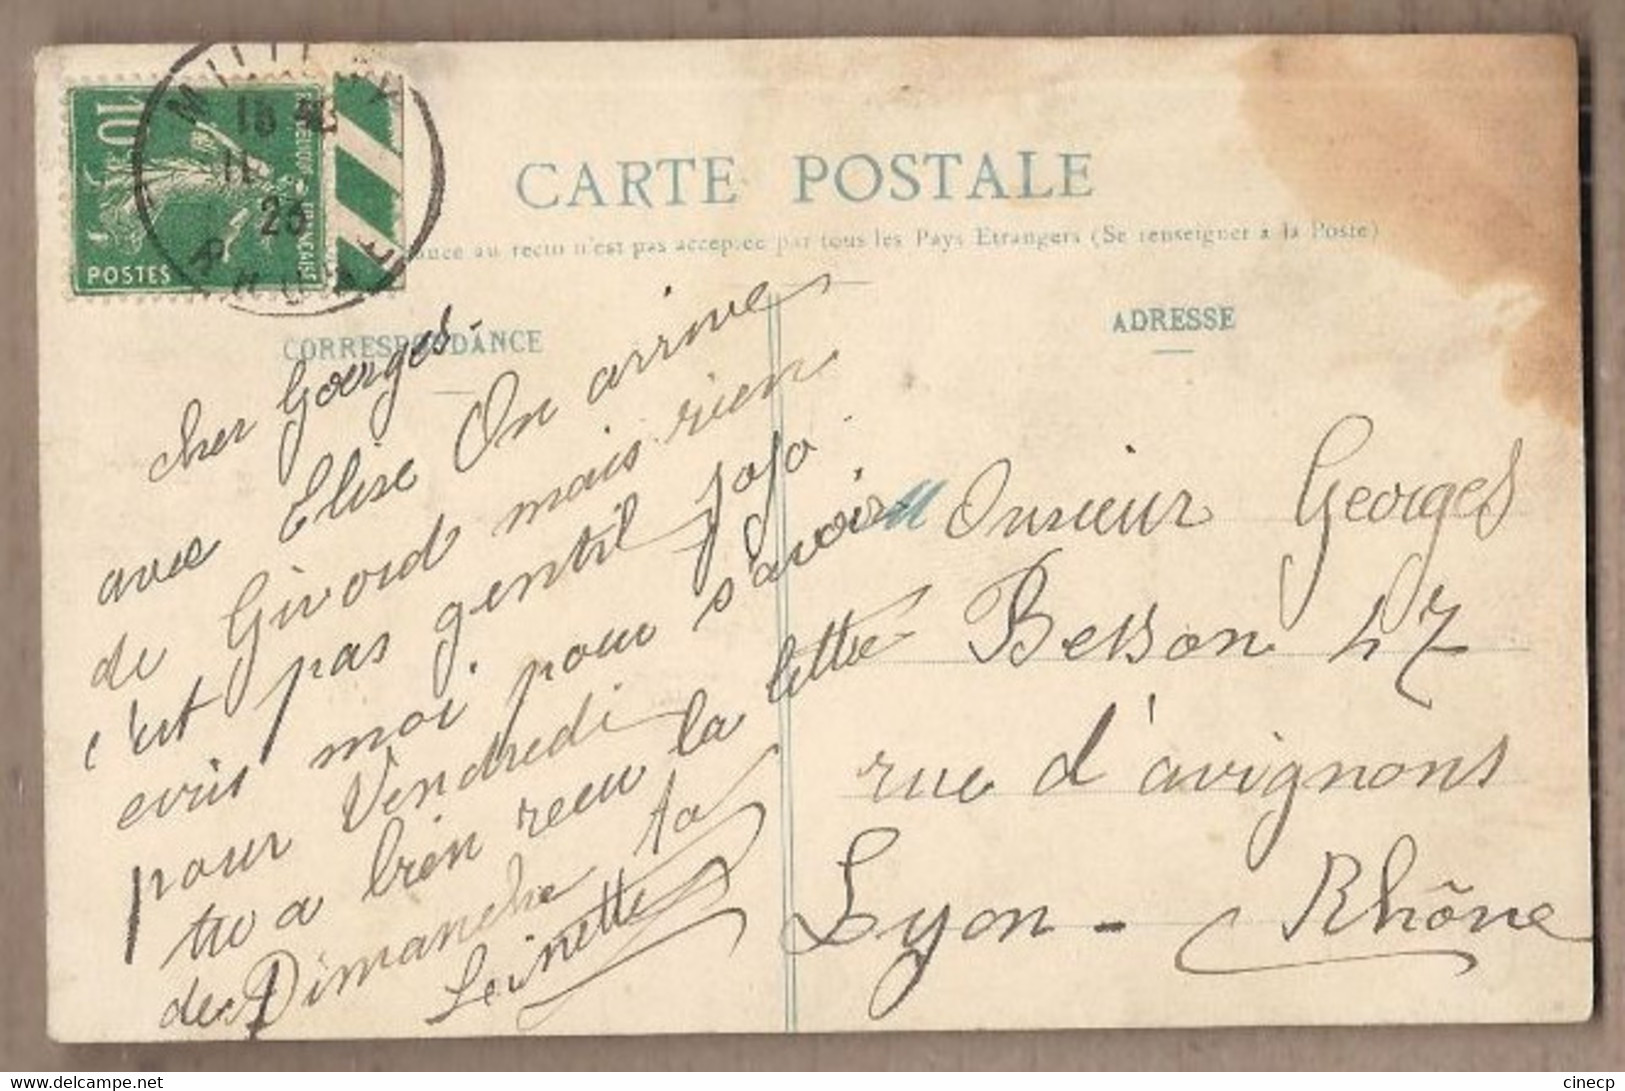 10
POSTES
MILLERY
18
11
23
RHONE
CARTE POSTALE
au recto n'est pas acceptée par tous les Pays Etrangers (Se renseigner à la Poste)
CORRESPONDANCE
ADRESSE
cher Goerges
avec Elise On arrive
de Givord mais rien
c'est pas gentil jojo
ecris moi pour savoir
pour Vendredi si
tu a bien recu la lettre
de Dimanche ta
Leinette
Monsieur Georges
Besson 47
rue d'avignons
Lyon - Rhône
https://www.delcampe.net
cinecp